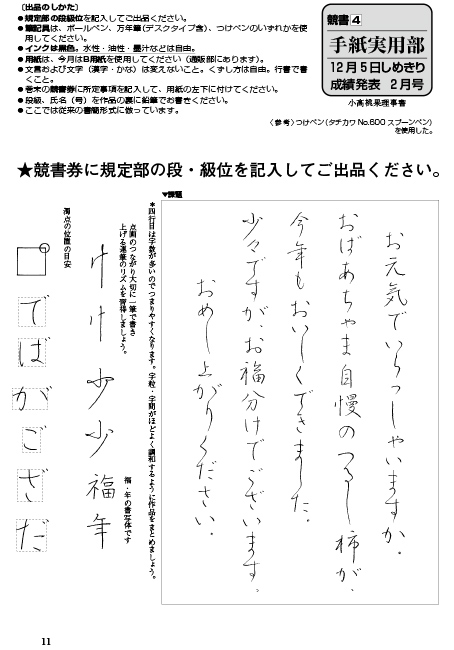 〔出品のしかた〕
●規定部の段級位を記入してご出品ください。
●筆記具は、ボールペン、万年筆(デスクタイプ含)、つけペンのいずれかを使
用してください。
●インクは黒色。水性・油性・墨汁などは自由。
●用紙は、今月はB用紙を使用してください(通販部にあります)。
●文言および文字(漢字・かな)は変えないこと。くずし方は自由。行書で書
くこと。
●巻末の競書券に所定事項を記入して、用紙の左下に付けてください。
●段級、氏名(号)を作品の裏に鉛筆でお書きください。
●ここでは従来の書簡形式に倣っています。
競書4
手紙実用部
12月5日しめきり
成績発表 2月号
小高桃果理事書
〈参考〉つけペン(タチカワ No.600 スプーンペン)
を使用した。
★競書券に規定部の段・級位を記入してご出品ください。
▼課題
お元気でいらっしゃいますか。
おばあちゃま自慢のつるし柿が、
今年もおいしくできました。
少々ですが、お福分けでございます。
おめし上がりください。
*四行目は字数が多いのでつまりやすくなります。字粒・字間がほどよく調和するように作品をまとめましょう。
点画のつながり大切に一筆で書き
上げる運筆のリズムを習得しましょう。
福・年の書写体です
少少福年
濁点の位置の目安
でばがござだ
11